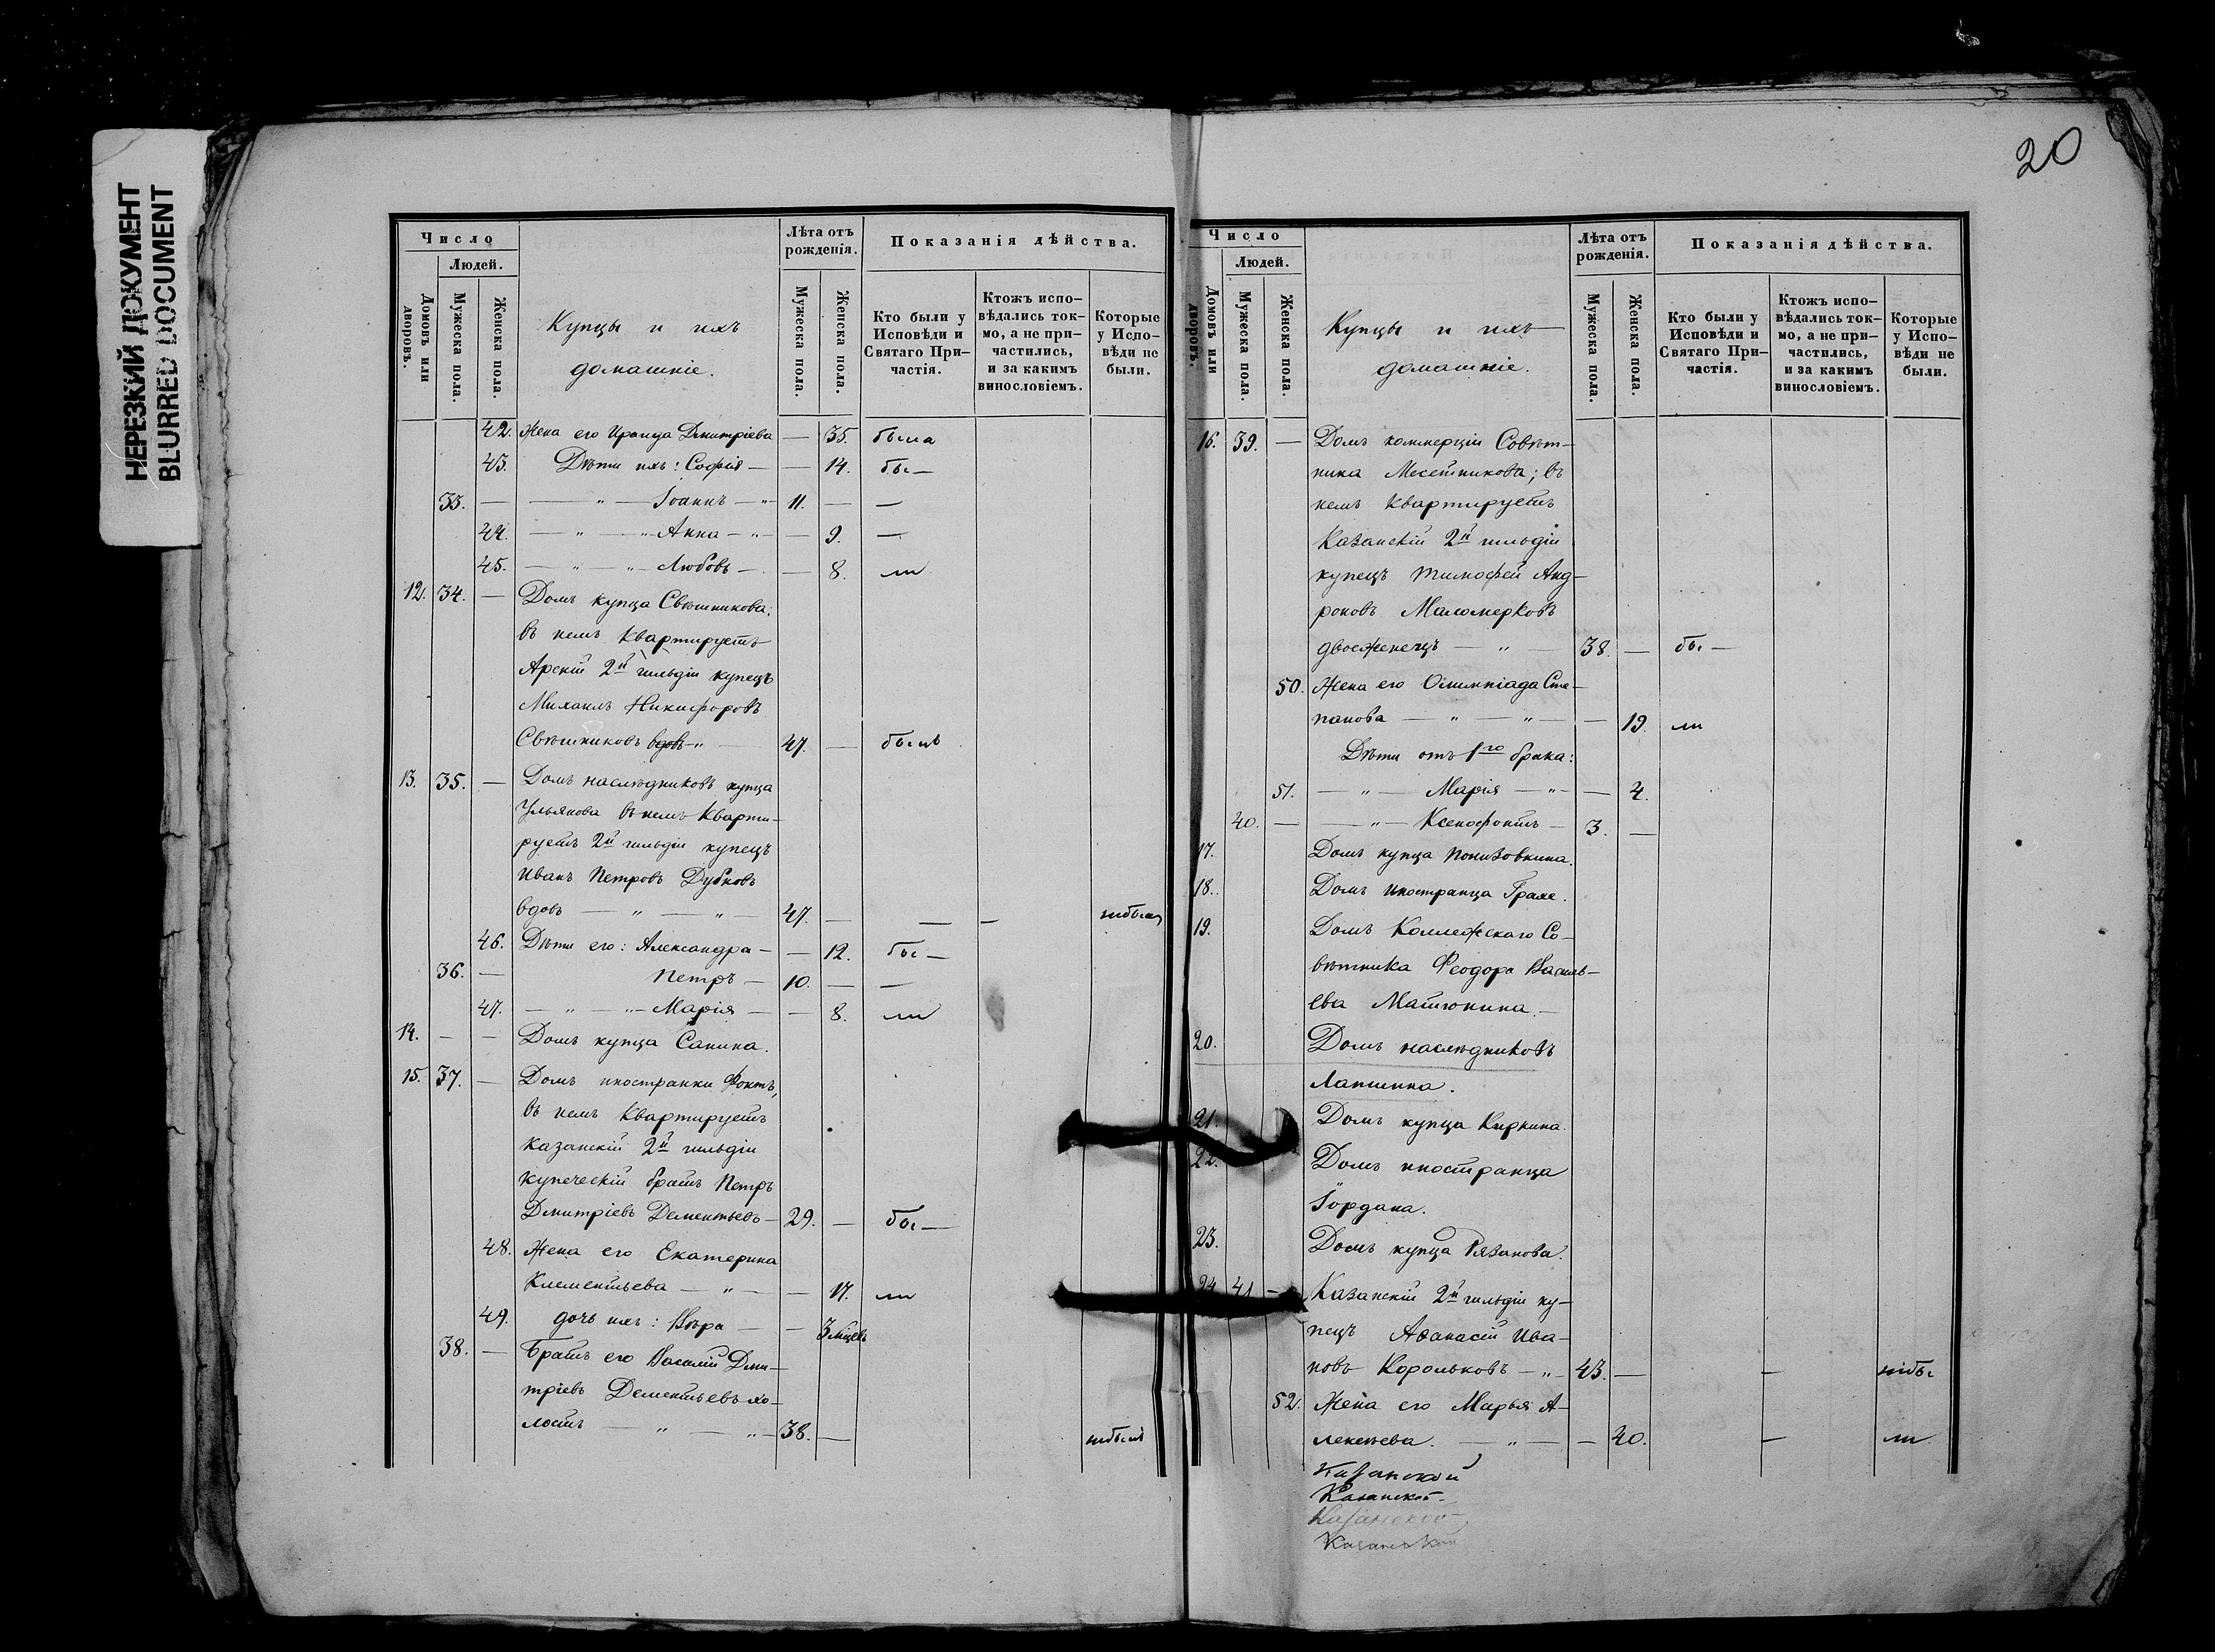 НЕРЕЗКИЙ ДОКУМЕНТ
BLURRED DOCUMENT
Число
Людей.
Домовъ или дворовъ.
Мужеска пола.
Женска пола.
Купцы и ихъ
домашніе.
Лѣта отъ рожденія.
Мужеска пола.
Женска пола.
Показанія дѣйства.
Кто были у Исповѣди и Святаго При-
частія.
Ктожъ испо-
вѣдались ток-
мо, а не при-
частились,
и за какимъ
винословіемъ.
Которые
у Испо-
вѣди не
были.
42. Жена его Ираида Дмитріева — 35. была
43. Дѣти ихъ: Софія — — 14. бы —
33. — — " — Іоаннъ — " — 11. — —
44. — " — " — Анна — " — — 9. —
45. — " — " — Любовь — — 8. ли
12. 34. — Домъ купца Свѣшникова:
въ немъ квартируетъ
Арскій 2й гильдіи купецъ
Михаилъ Никифоровъ
Свѣшниковъ вдовъ " — 47. — былъ
13. 35. — Домъ наслѣдниковъ купца
Ульянова въ немъ кварти-
руетъ 2й гильдіи купецъ
Иванъ Петровъ Дубковъ
вдовъ — " — " — 47. — — —
46. Дѣти его: Александра — — 12. бы —
36. — Петръ — 10. — —
47. — " — " — Марія — — 8. ли
14. — — Домъ купца Санина.
15. 37. — Домъ иностранки Фоктъ,
въ немъ квартируетъ
Казанскій 2й гильдіи
купеческій братъ Петръ
Дмитріевъ Дементьевъ — 29. — бы —
48. Жена его Екатерина
Клементьева — " — — 17. ли
49. дочь ихъ: Вѣра — — 3 мѣсяц.
38. — Братъ его Василій Дми-
тріевъ Дементьевъ хо-
лостъ — " — " — 38. — небылъ
20
Число
Людей.
Домовъ или дворовъ.
Мужеска пола.
Женска пола.
Купцы и ихъ
домашніе.
Лѣта отъ рожденія.
Мужеска пола.
Женска пола.
Показанія дѣйства.
Кто были у Исповѣди и Святаго При-
частія.
Ктожъ испо-
вѣдались ток-
мо, а не при-
частились,
и за какимъ
винословіемъ.
Которые
у Испо-
вѣди не
были.
16. 39. — Домъ коммерціи Совѣт-
ника Месетникова; въ
немъ квартируетъ
Казанскій 2й гильдіи
купецъ Тимофей Анд-
роновъ Маломерковъ
двоеженецъ — " — 38. — бы —
50. Жена его Олимпіада Сте-
панова — " — " — — 19. ли
Дѣти отъ 1го брака:
51. — " — Марія — " — — 4.
40. — — " — Ксенофонтъ — 3. —
17. Домъ купца Понизовкина.
18. Домъ иностранца Грахе.
19. Домъ Коллежскаго Со-
вѣтника Феодора Василь-
ева Матюнина. —
20. Домъ наслѣдниковъ
Лапшина.
21. Домъ купца Киркина.
22. Домъ иностранца
Іордана.
23. Домъ купца Рязанова.
24. 41 — Казанскій 2й гильдіи ку-
пецъ Аѳанасій Ива-
новъ Корольковъ — " — 43. — — небы
52. Жена его Марья А-
лексѣева. — " — — 40. — ли
Казанской
Казанской
Казанской
Казанской